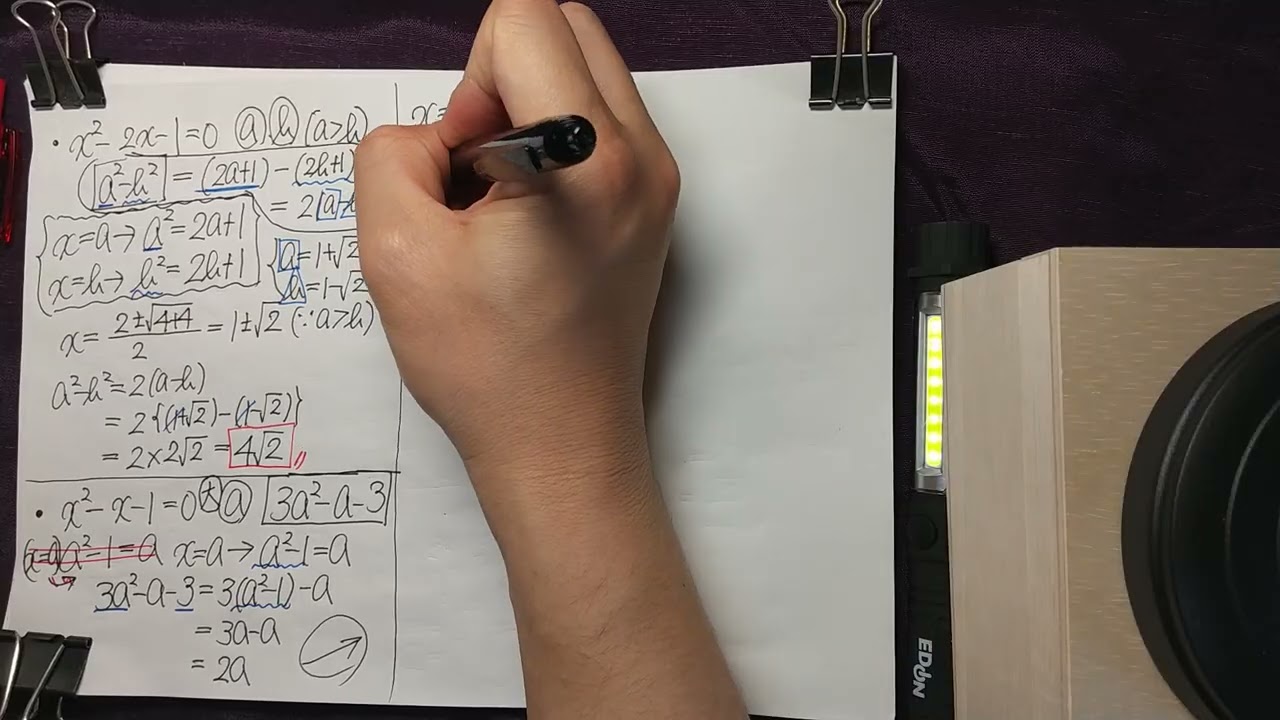 · x²-2x-1=0 ⓐ, ⓑ (a>b)
|a²-b²| = (2a+1) - (2b+1)
= 2|a-
x=a→a²=2a+1
x=b→b²=2b+1
a=1+√2
b=1-√2
x= (2±√(4+4))/2 = 1±√2 (∵a>b)
a²-b²=2(a-b)
= 2{(1+√2)-(1-√2)}
= 2×2√2 = 4√2
· x²-x-1=0 ⓐ 3a²-a-3
(x=a)a²-1=a x=a→a²-1=a
3a²-a-3=3(a²-1)-a
= 3a-a
= 2a
x=
EDON